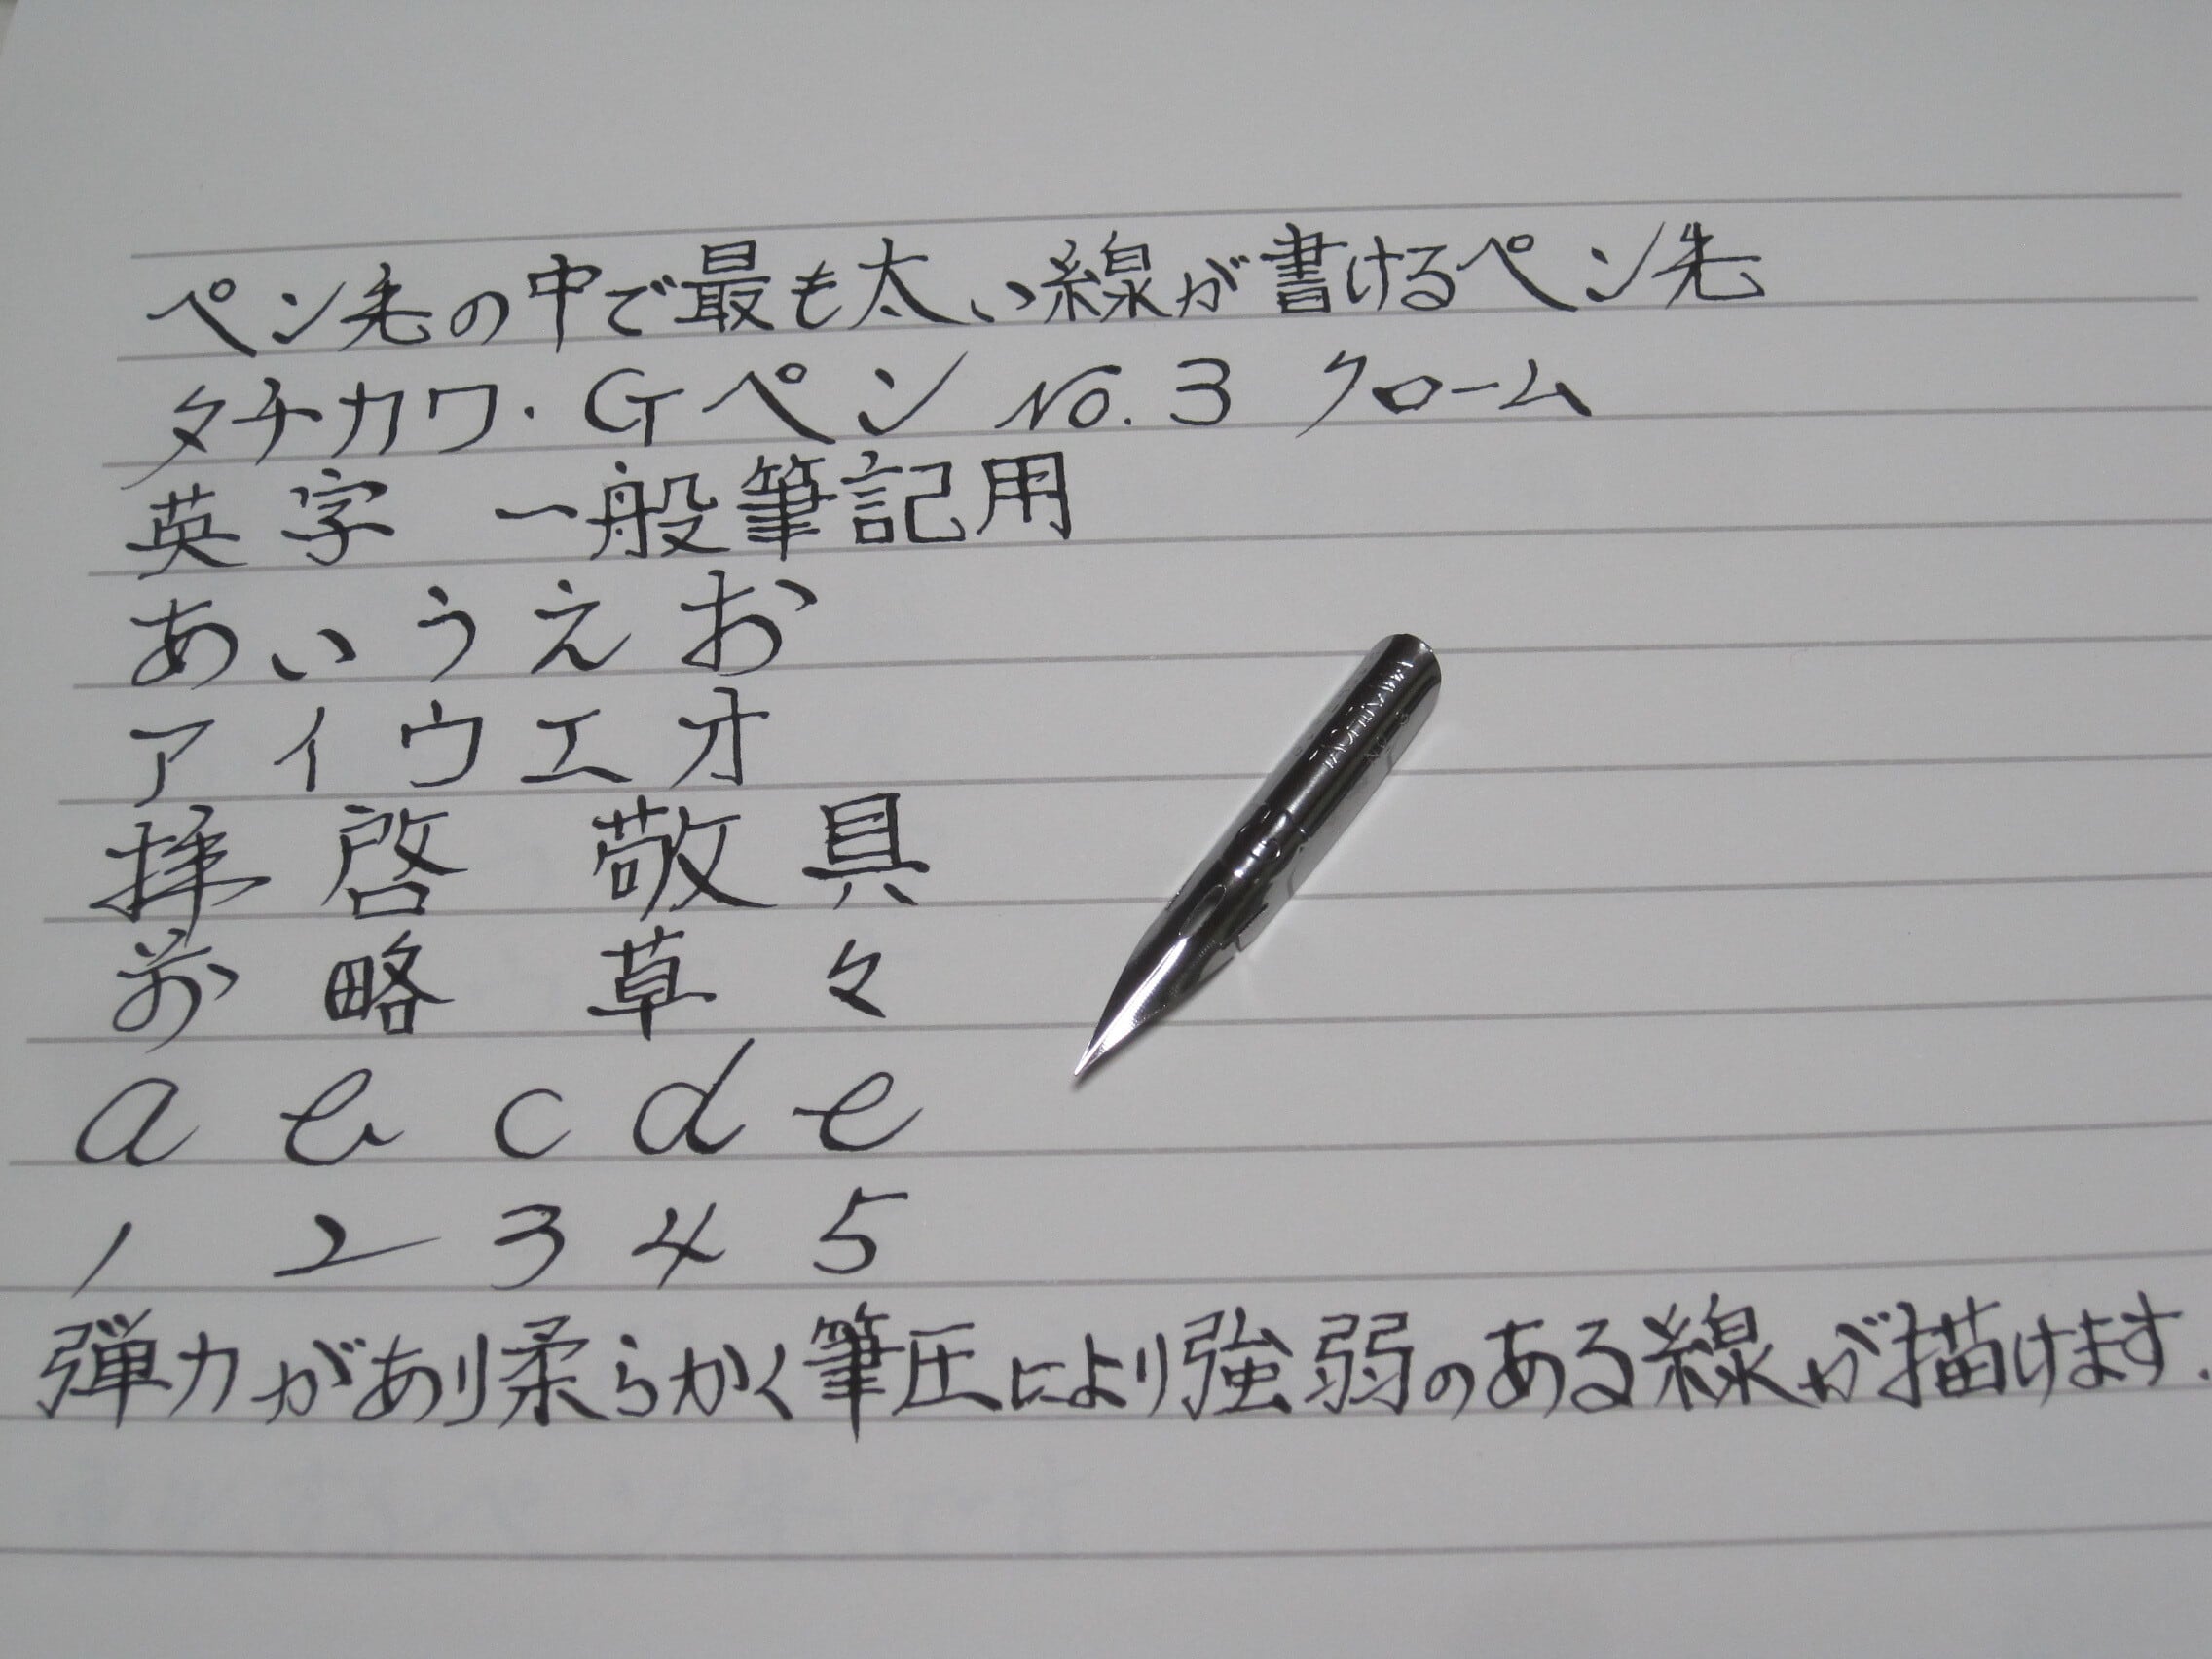 ペン先の中で最も太い線が書けるペン先
タチカワ・Gペン No.3 クローム
英字 一般筆記用
あいうえお
アイウエオ
拝啓 敬具
前略 草々
a b c d e
1 2 3 4 5
弾力があり柔らかく筆圧により強弱のある線が描けます.